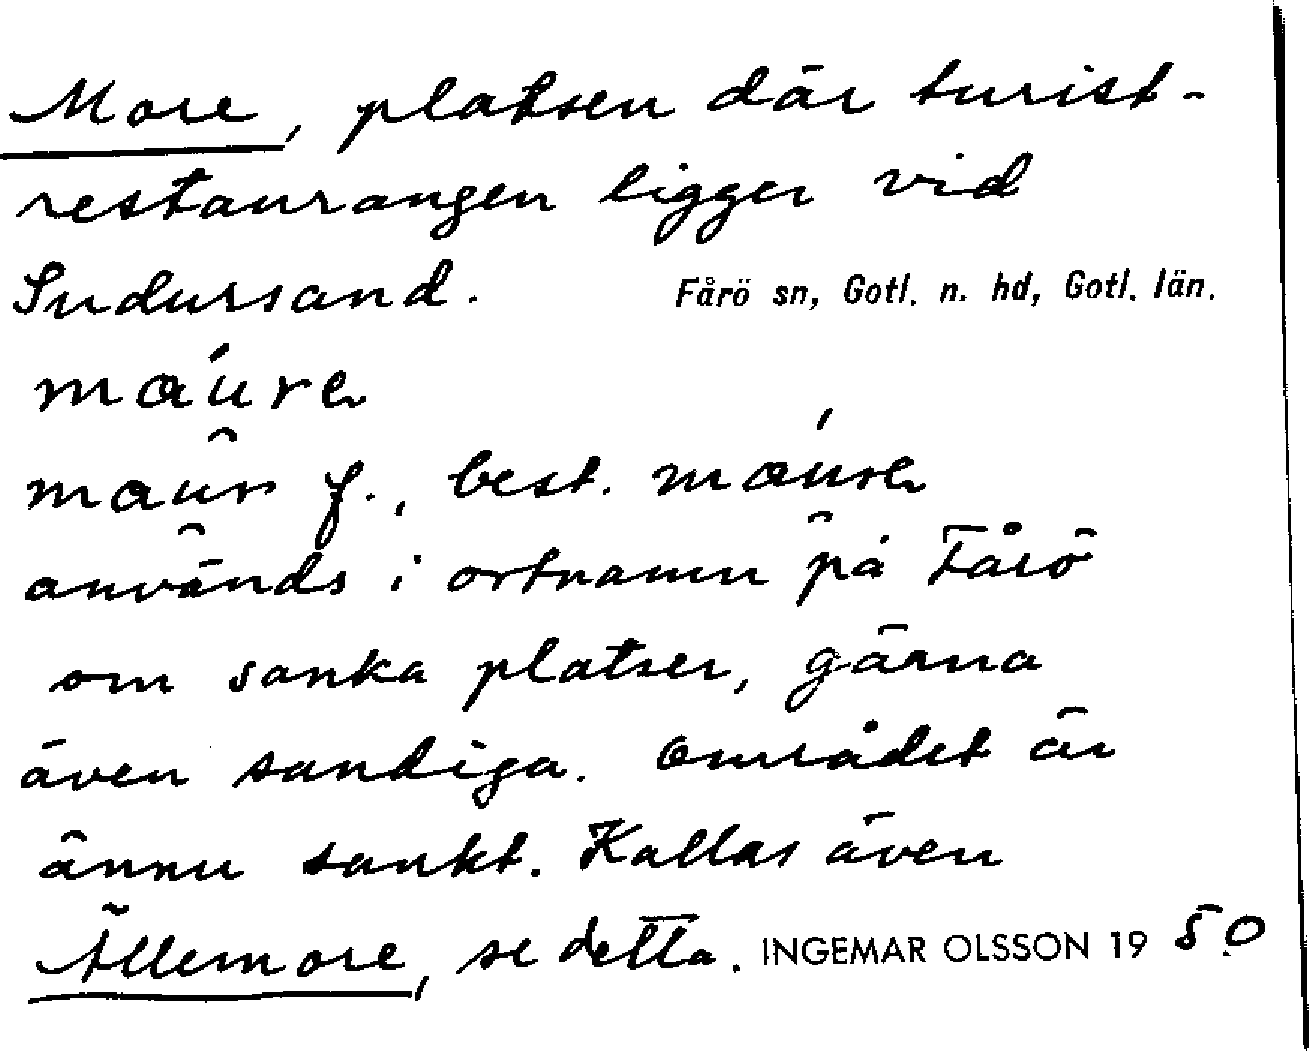 More, platsen där turist-
restaurangen ligger vid
Sudursand. Fårö sn, Gotl. n. hd, Gotl. län.
máure
mau̯r f., best. máure
används i ortnamn på Fårö
om sanka platser, gärna
även sandiga. Området är
ännu sankt. Kallas även
Ällemore, se detta. INGEMAR OLSSON 19 50